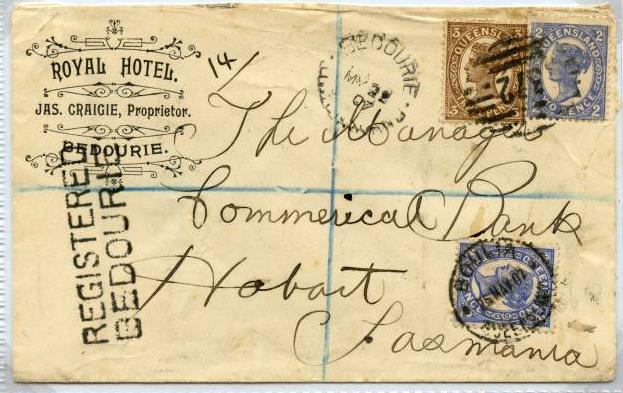 ROYAL HOTEL.
JAS. CRAIGIE, Proprietor.
BEDOURIE.
14
BEDOURIE
QUEENSLAND
3
3
2 QUEENSLAND 2
2 TWO PENCE 2
The Manager
Commerical Bank
Hobart
Tasmania
REGISTERED
BEDOURIE
BOULIA
QUEENSLAND